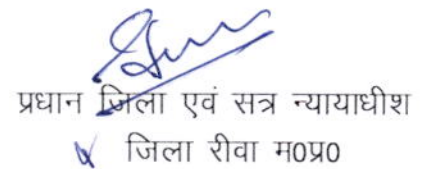 प्रधान जिला एवं सत्र न्यायाधीश
जिला रीवा म0प्र0